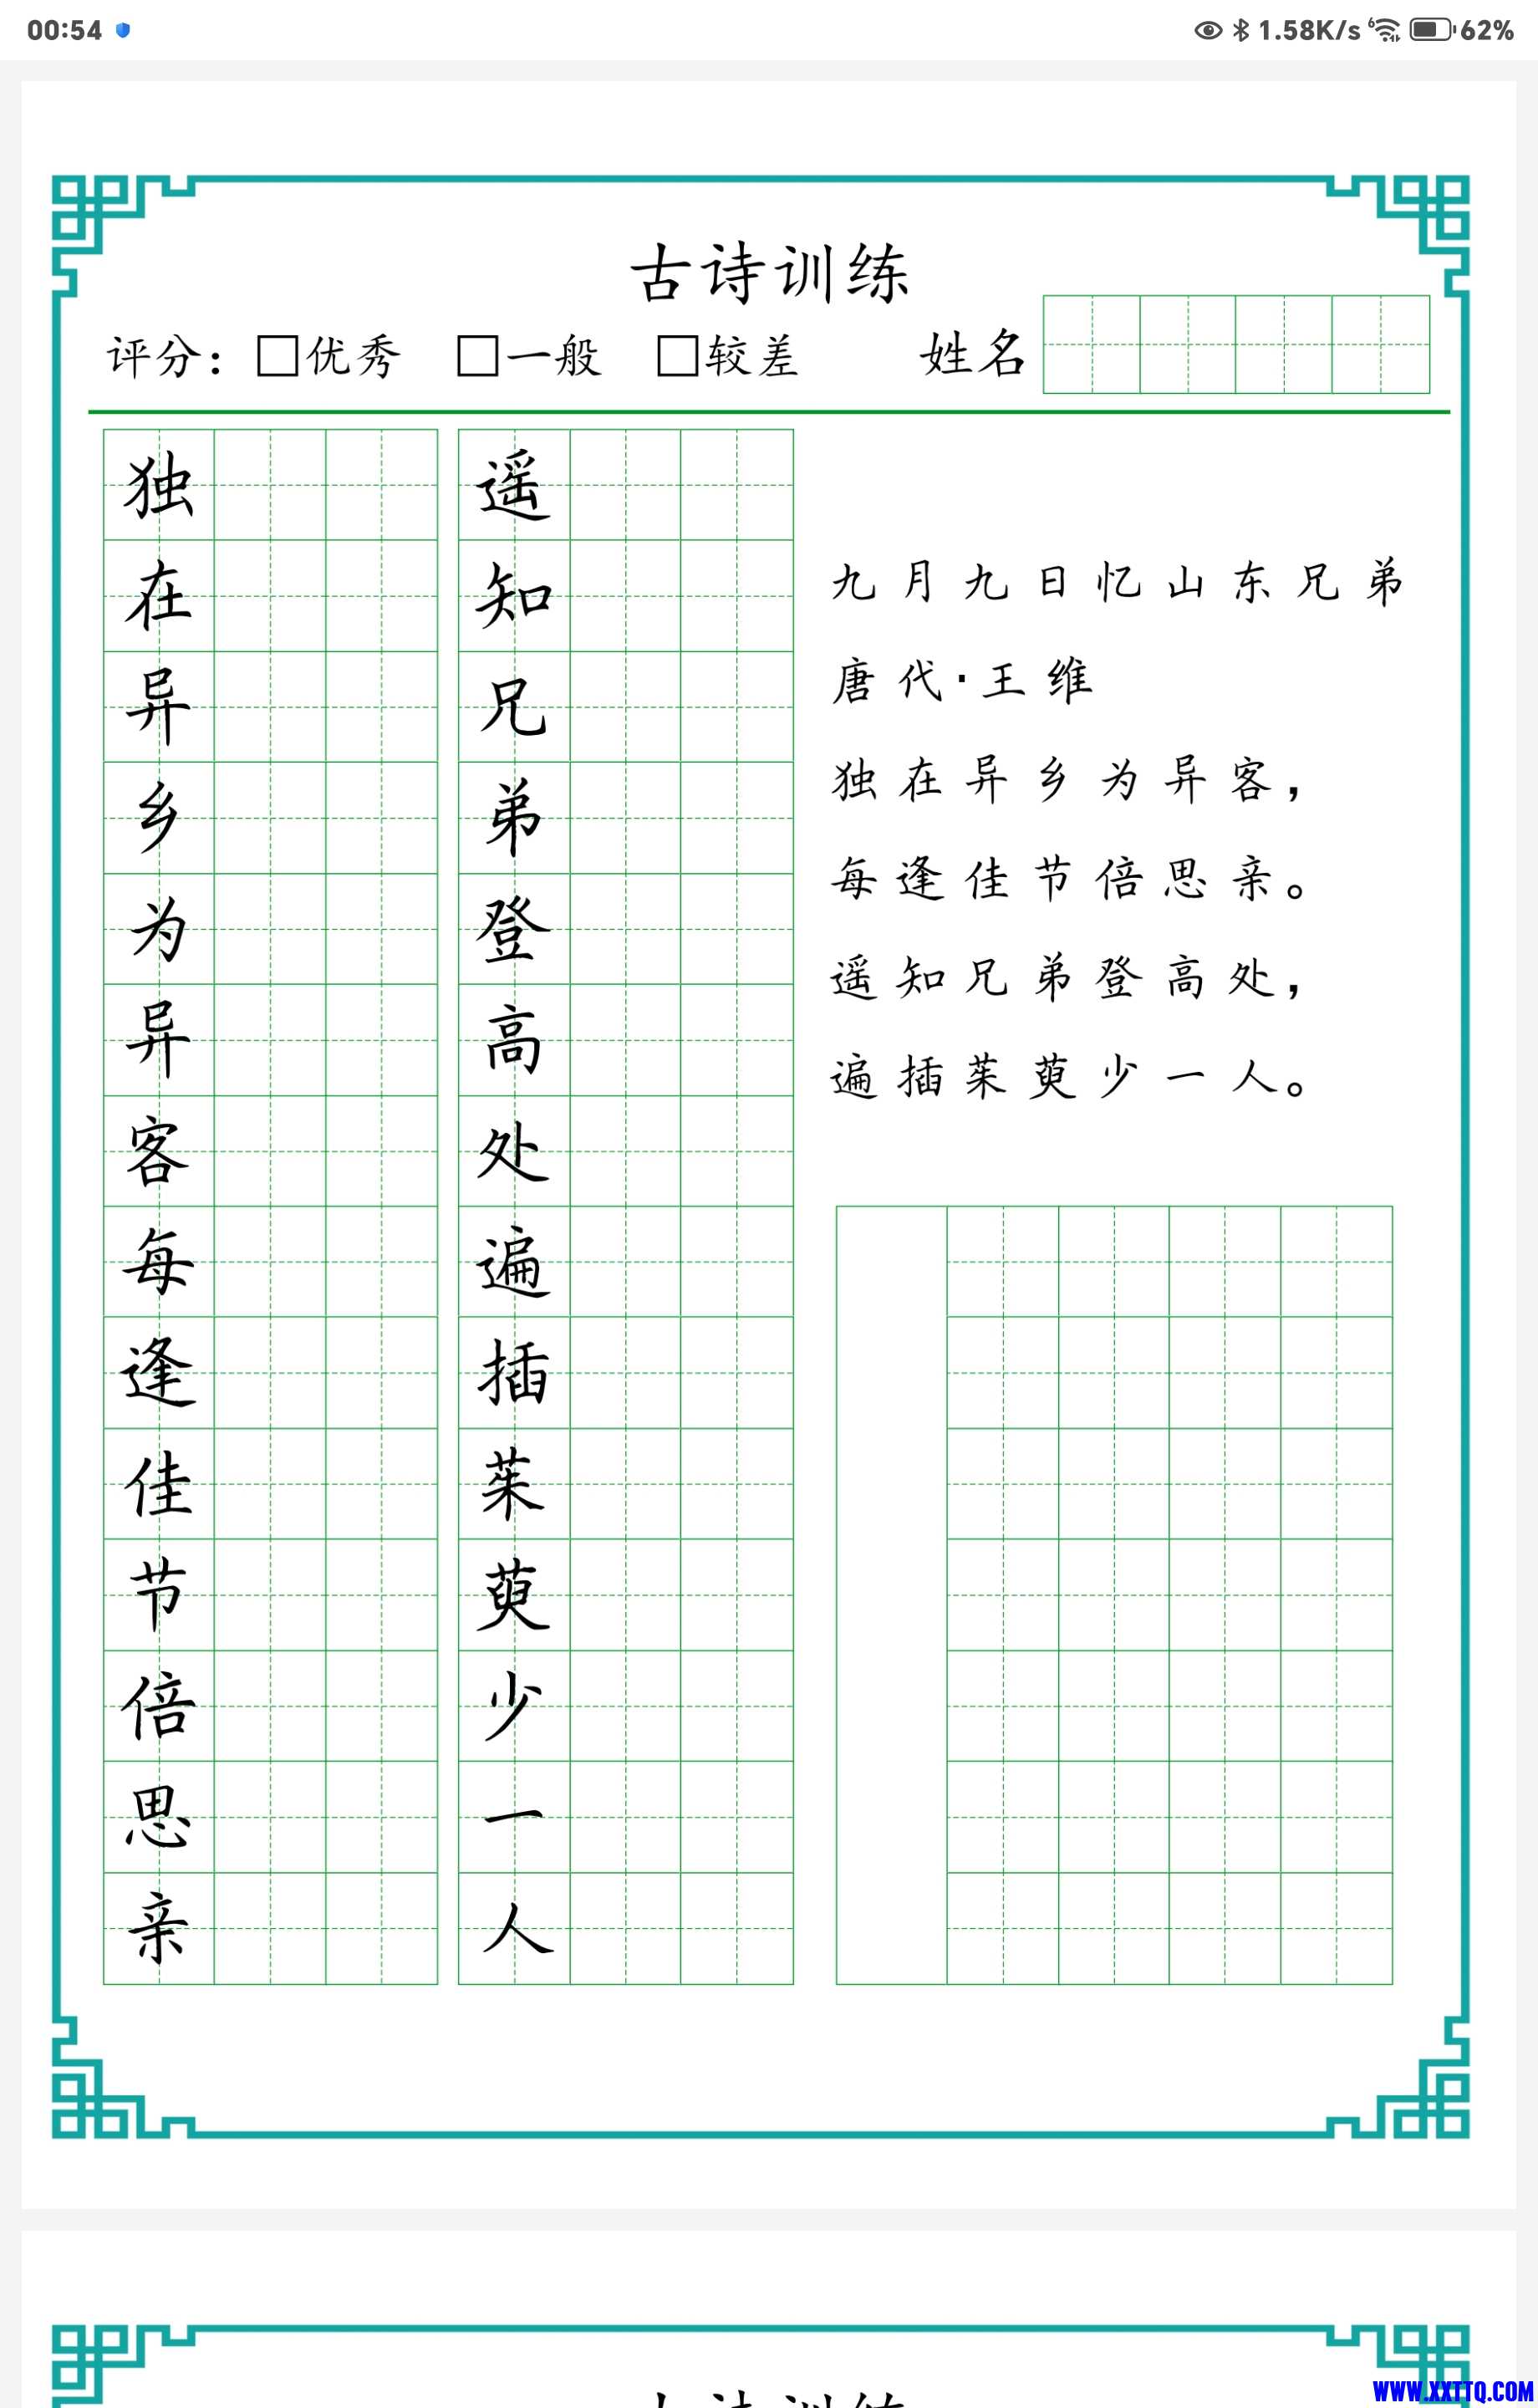 00:54 1.58K/s 6 62%
古诗训练
评分：□优秀 □一般 □较差 姓名
独
在
异
乡
为
异
客
每
逢
佳
节
倍
思
亲
遥
知
兄
弟
登
高
处
遍
插
茱
萸
少
一
人
九月九日忆山东兄弟
唐代·王维
独在异乡为异客，
每逢佳节倍思亲。
遥知兄弟登高处，
遍插茱萸少一人。
古诗训练
WWW.XXTTQ.COM